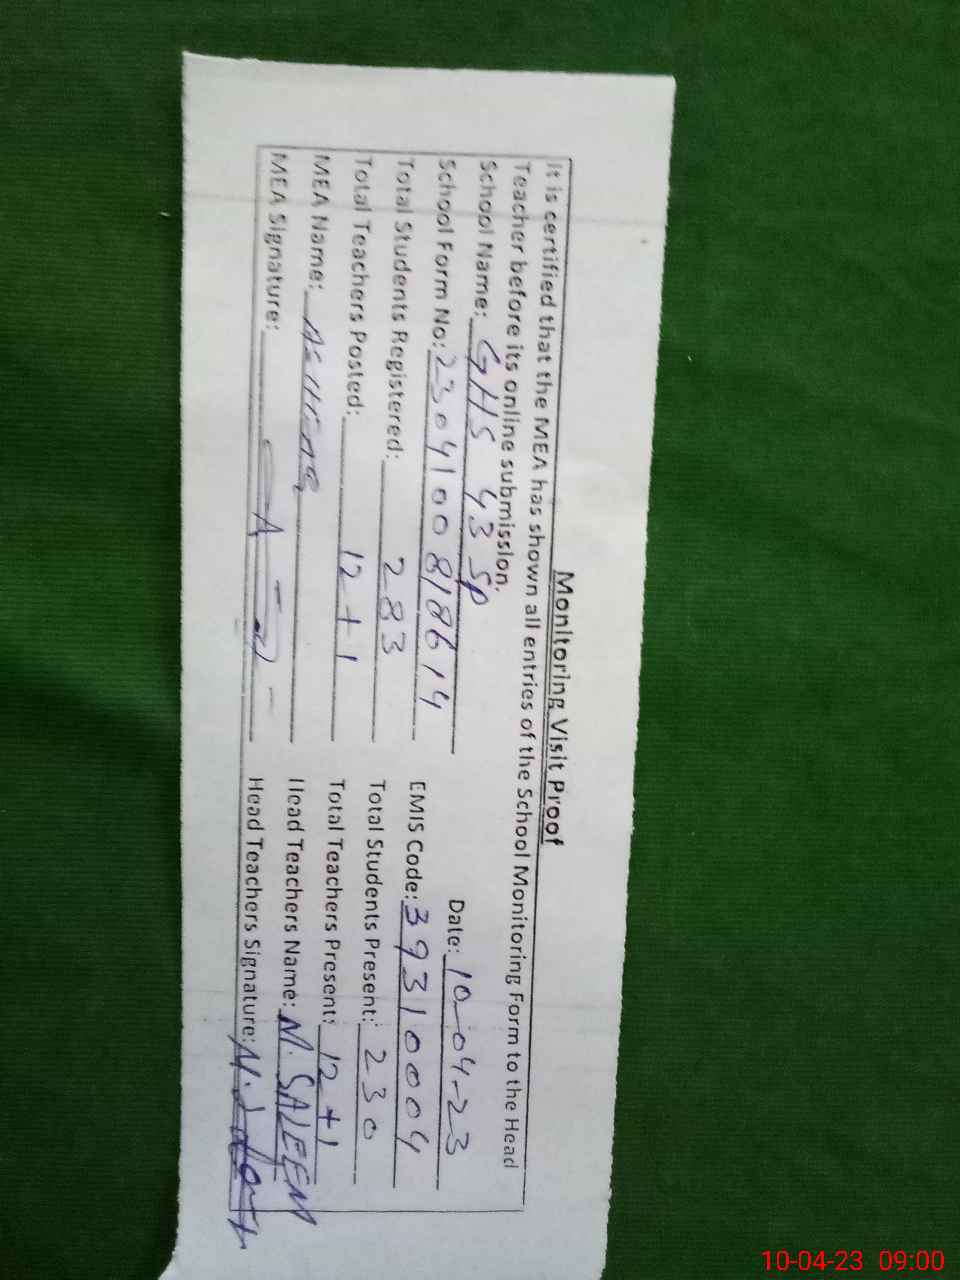 Monitoring Visit Proof
It is certified that the MEA has shown all entries of the School Monitoring Form to the Head
Teacher before its online submission.
School Name: GHS 43 SP Date: 10-04-23
School Form No: 2304100818614 EMIS Code: 39310004
Total Students Registered: 283 Total Students Present: 230
Total Teachers Posted: 12+1 Total Teachers Present: 12+1
MEA Name: Head Teachers Name: M. SALEEM
MEA Signature: Head Teachers Signature:
10-04-23 09:00